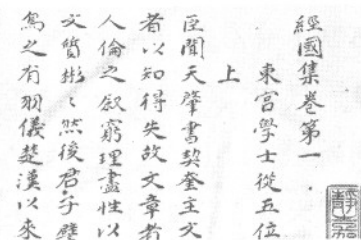 經國集卷第一
東宮學士從五位
上
臣聞天肇書契奎主文
者以知得失故文章者
人倫之叙窮理盡性以
文質彬々然後君子譬
鳥之有羽儀楚漢以來